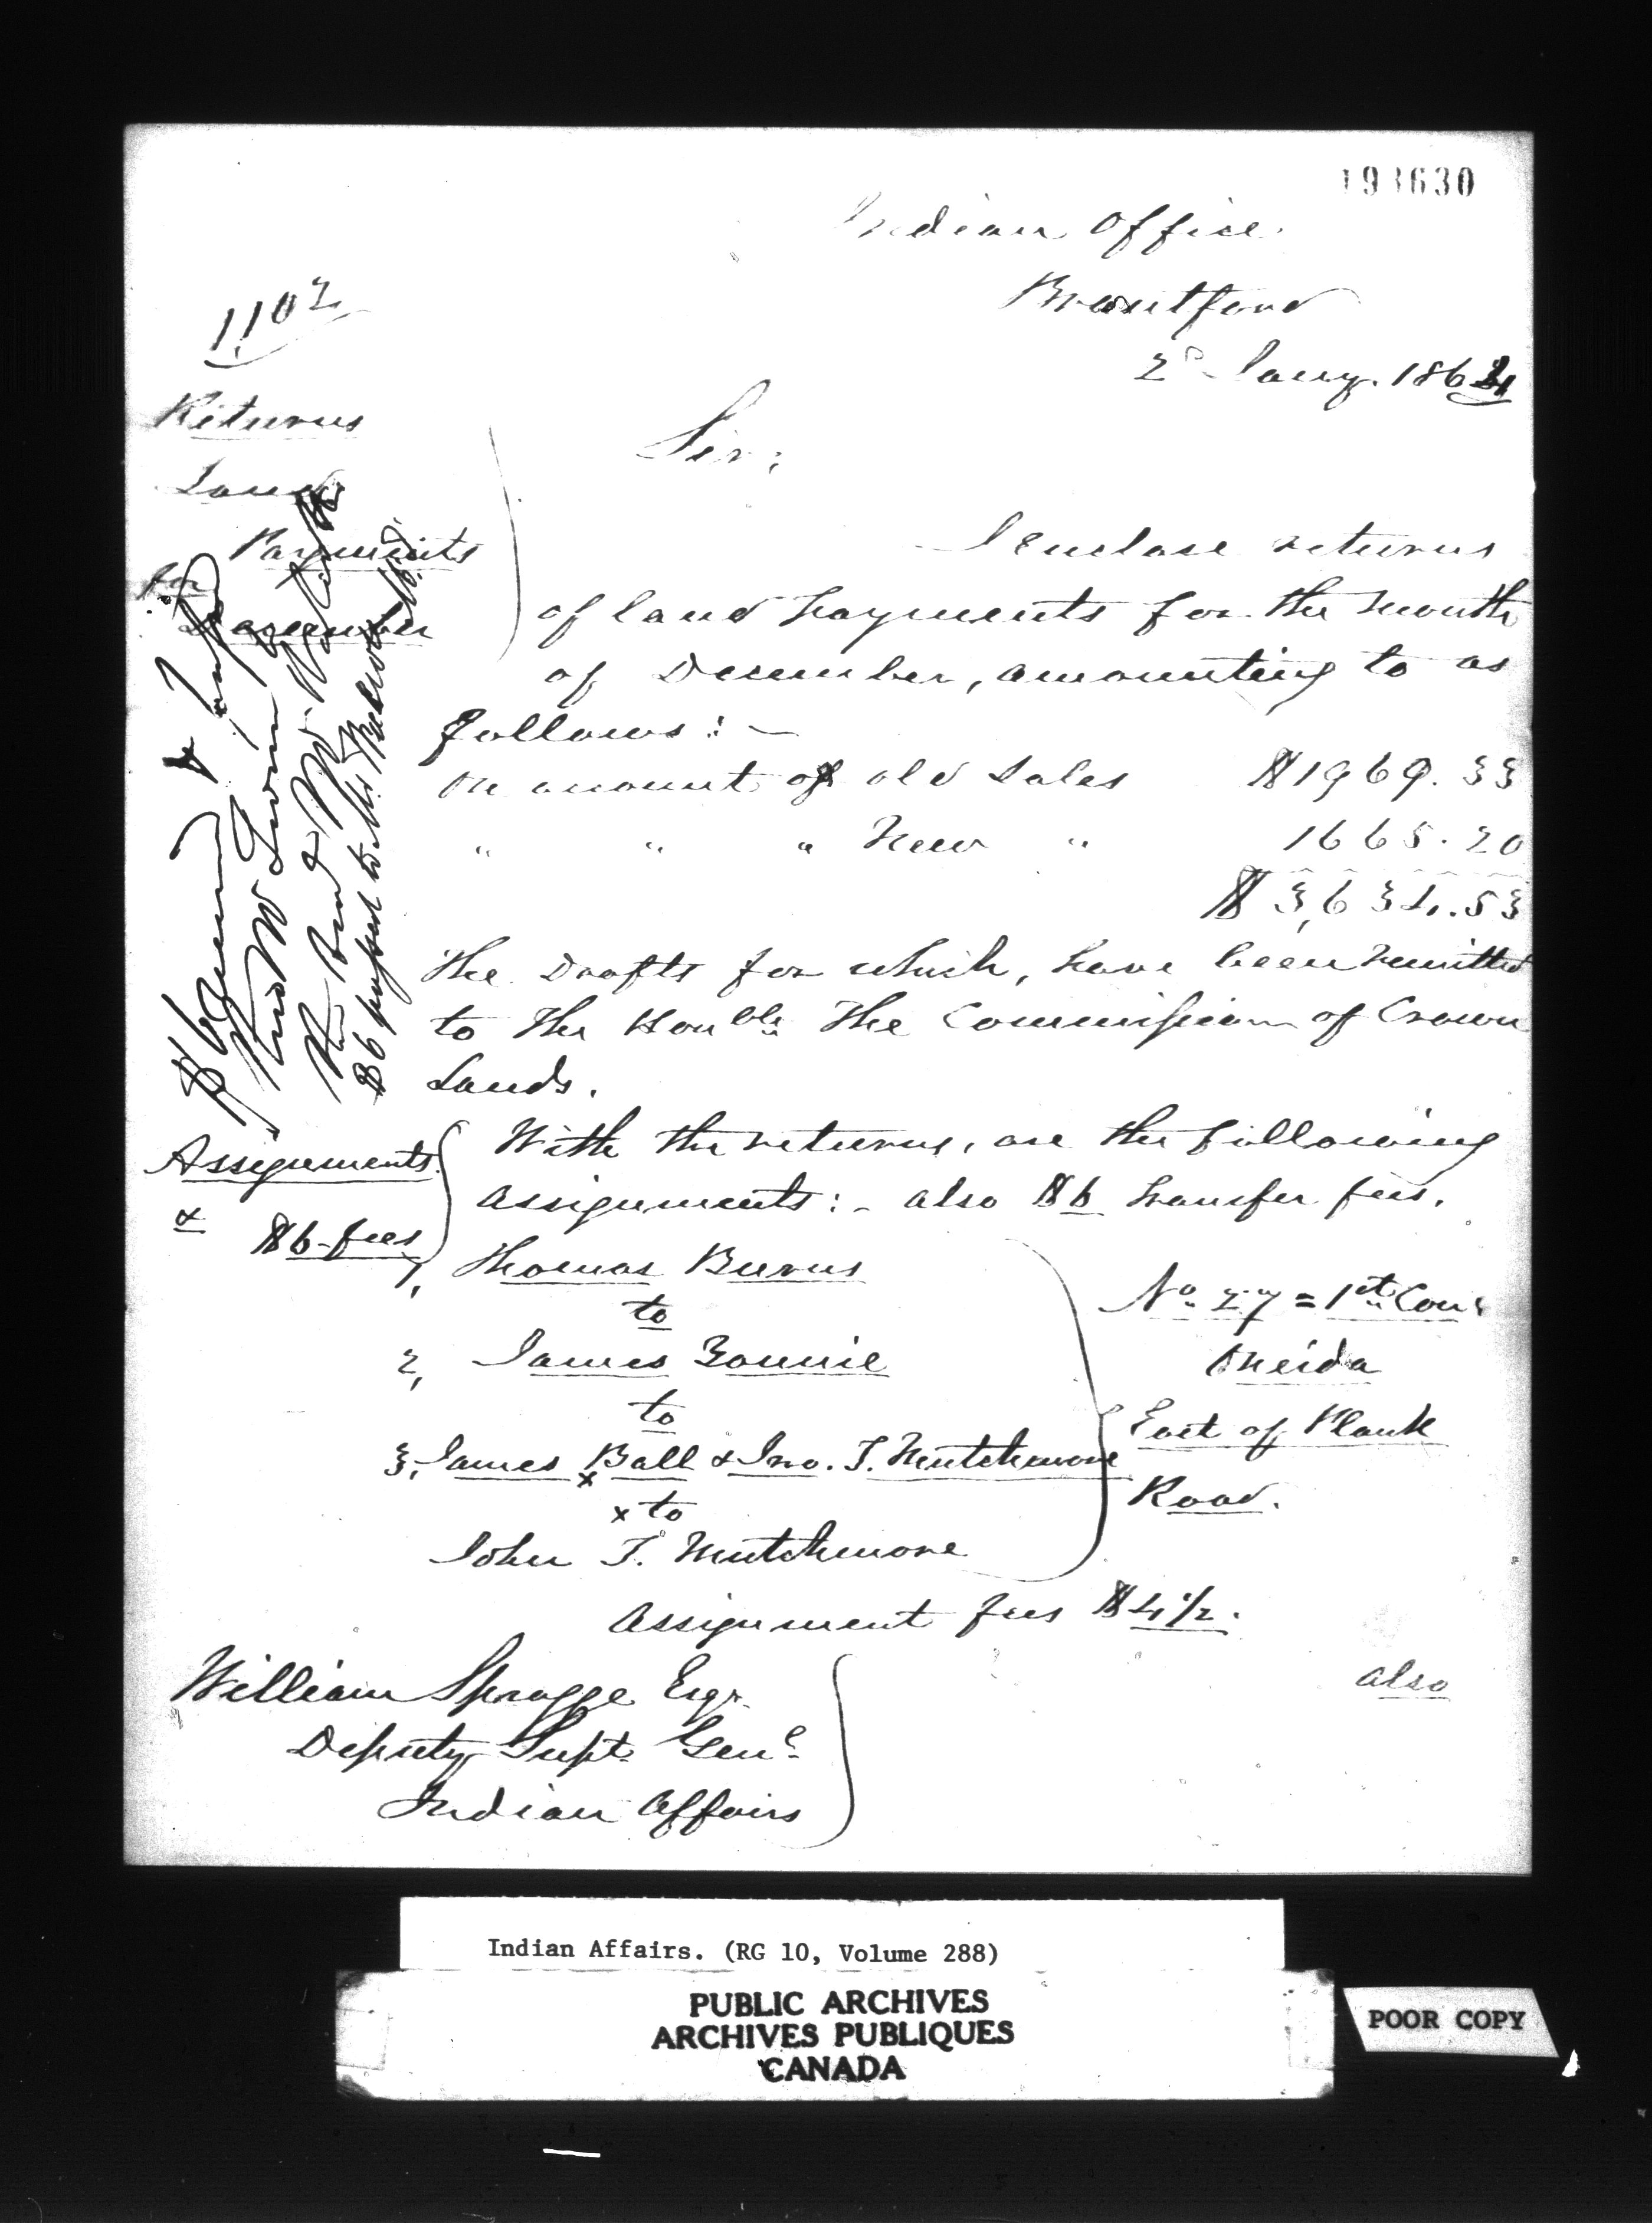 193630
Indian Office
Brantford
2d Jany. 1864
1102
Returns
Land
Payments
for
December
Sir;
I enclose returns
of land payments for the month
of December, amounting to as
follows: —
On amount of old Sales $1969.33
" " " New " 1665.20
$3,634.53
The Drafts for which, have been remitted
to the Honble. The Commissioner of Crown
Lands.
$6
$6 passed to Mr.
Assignments
&
$6 fees
With the returns, are the following
assignments: - also $6 transfer fees.
1, Thomas Burns
to
2, James
to
3, James Ball & Jno. T. Mutchmore
x
x to
John T. Mutchmore
No. 27 = 1st Con:
Oneida
East of Plank
Road.
Assignment fees $4 1/2.
also
William Spragge Esqr.
Deputy Supt. Genl.
Indian Affairs
Indian Affairs. (RG 10, Volume 288)
PUBLIC ARCHIVES
ARCHIVES PUBLIQUES
CANADA
POOR COPY